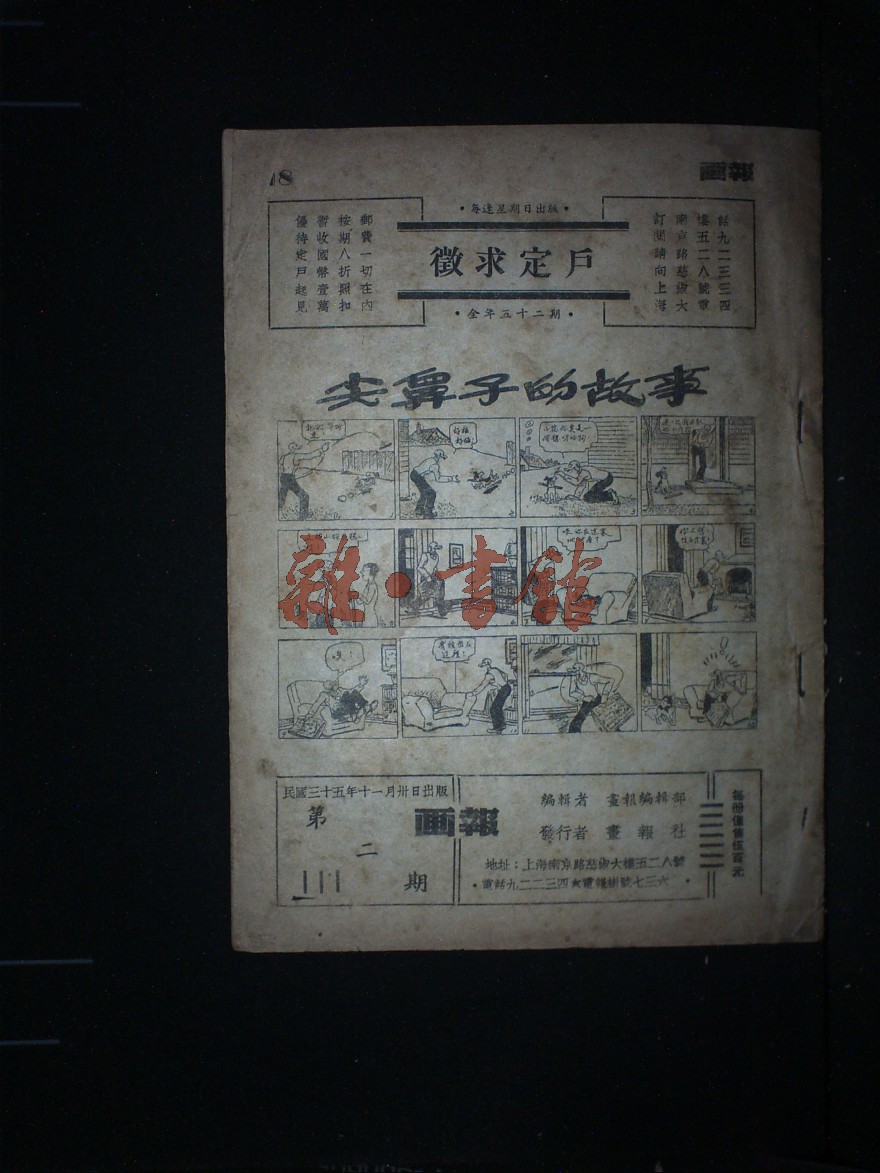 18
画報
•每逢星期日出版•
徵求定戶
•全年五十二期•
訂閱請向上海
南京路慈淑大
樓五二八號電
話九二二三四
郵費一切在內
按期八折照扣
暫收國幣壹萬
優待定戶起見
尖鼻子的故事
雜·書館
民國三十五年十一月卅日出版
第
二
期
画報
編輯者 畫報編輯部
發行者 畫報社
地址：上海南京路慈淑大樓五二八號
•電話九二二三四★電報掛號七三六•
每冊僅售伍百元